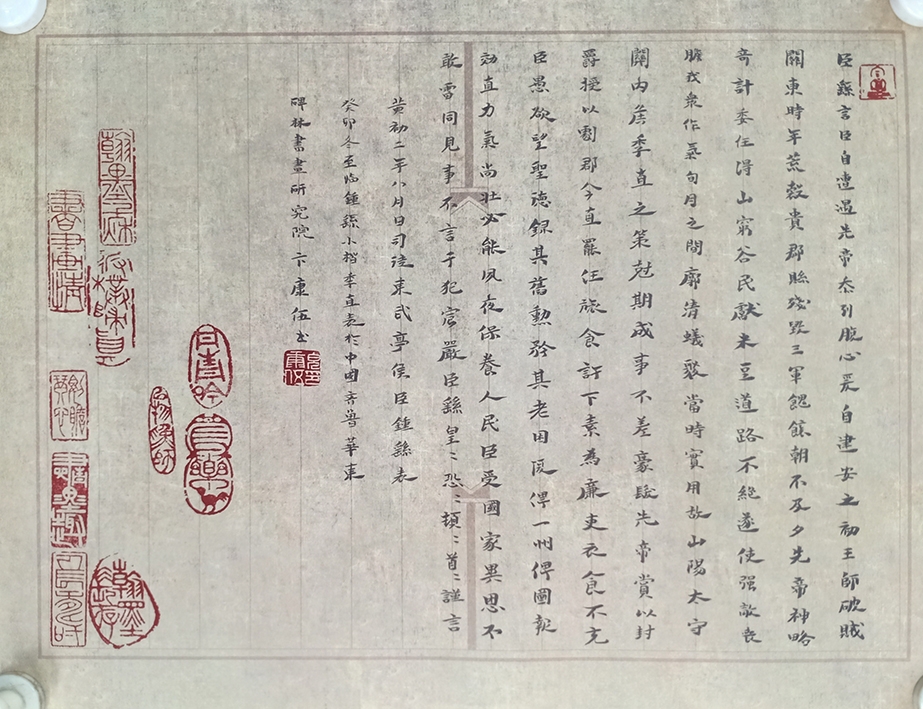 臣繇言臣自遭遇先帝忝列腹心爰自建安之初王師破賊
關東時年荒穀貴郡縣殘毀三軍餽饟朝不及夕先帝神略
奇計委任得山窮谷民獻米豆道路不絕遂使强敵喪
膽我衆作氣旬月之間廓清蟻聚當時實用故山陽太守
關內侯季直之策尅期成事不差豪髮先帝賞以封
爵授以劇郡今直罷任旅食許下素為廉吏衣食不充
臣愚欲望聖德錄其舊勳矜其老困復俾一州俾圖報
効直力氣尚壯必能夙夜保養人民臣受國家異恩不
敢雷同見事不言干犯宸嚴臣繇皇〻恐〻頓〻首〻謹言
黃初二年八月日司徒東武亭侯臣鍾繇表
癸卯冬至臨鍾繇小楷季直表於中國齊魯華東
碑林書畫研究院 卞康伍书
書畫情
翰墨
日書吟